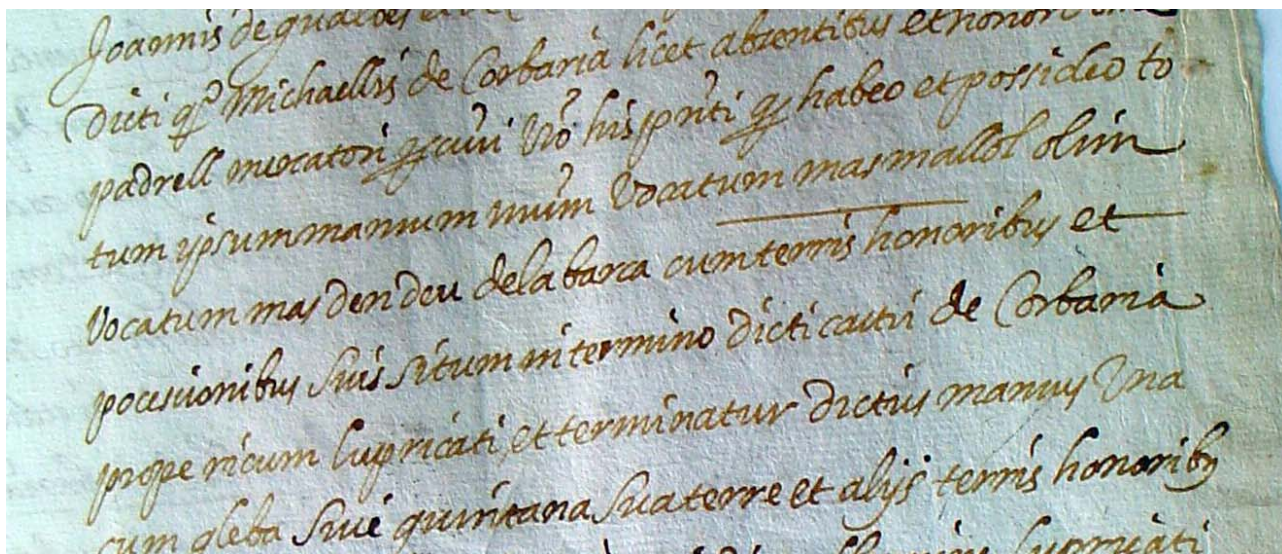 Joannis de
dicti qº Michaellis de Corbaria licet absentibus et honor
padrell mercatori his habeo et possideo to
tum ypsum mansum meum vocatum mas mallol olim
vocatum mas den deu dela barca cum terris honoribus et
pocesionibus suis situm in termino dicti castri de Corbaria
prope ricum lupricati et terminatur dictus mansus una
cum gleba sive quintana sua terre et alijs terris honoribus
lupricati